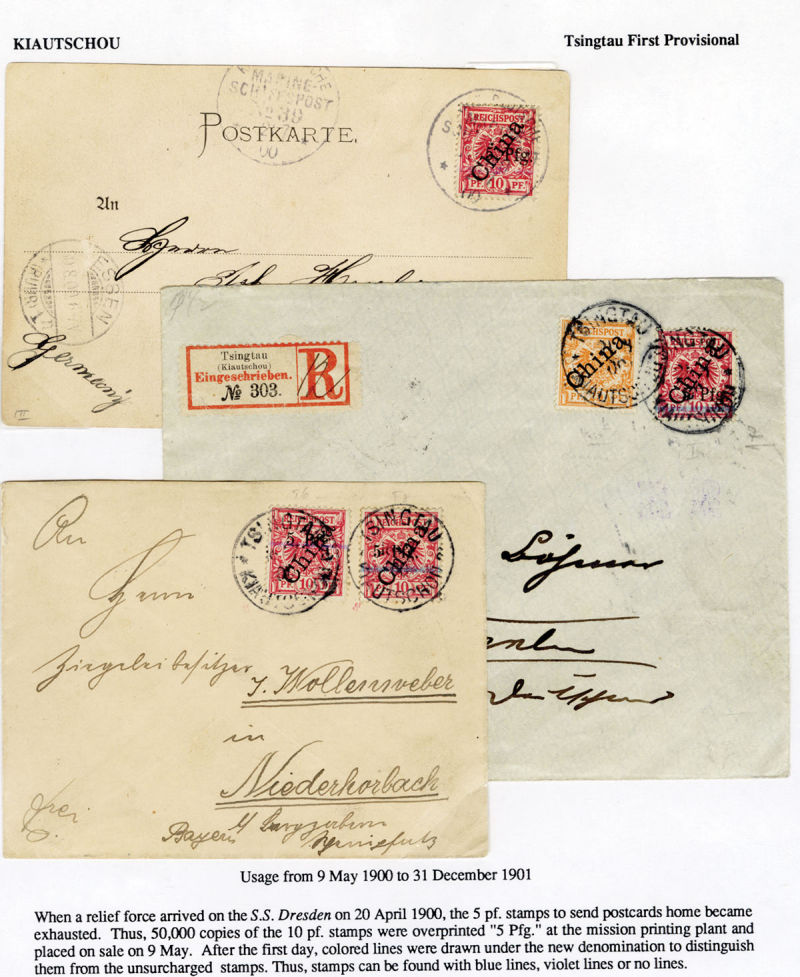 KIAUTSCHOU
Tsingtau First Provisional
MARINE-
SCHIFFSPOST
No 39
00
POSTKARTE.
REICHSPOST
China
5 Pfg.
PF. 10 PF.
An
Herrn
ESSEN
Germany
Tsingtau
(Kiautschou)
Eingeschrieben.
R
№ 303.
TSINGTAU
KIAUTSCHOU
REICHSPOST
China
TSINGTAU
KIAUTSCHOU
China
5 Pfg.
An
TSINGTAU
KIAUTSCHOU
China
10
TSINGTAU
KIAUTSCHOU
China
10
Herrn
Ziegeleibesitzer
J. Wollensweber
in
Niederhorbach
frei
Bayern
Usage from 9 May 1900 to 31 December 1901
When a relief force arrived on the S.S. Dresden on 20 April 1900, the 5 pf. stamps to send postcards home became
exhausted. Thus, 50,000 copies of the 10 pf. stamps were overprinted "5 Pfg." at the mission printing plant and
placed on sale on 9 May. After the first day, colored lines were drawn under the new denomination to distinguish
them from the unsurcharged stamps. Thus, stamps can be found with blue lines, violet lines or no lines.